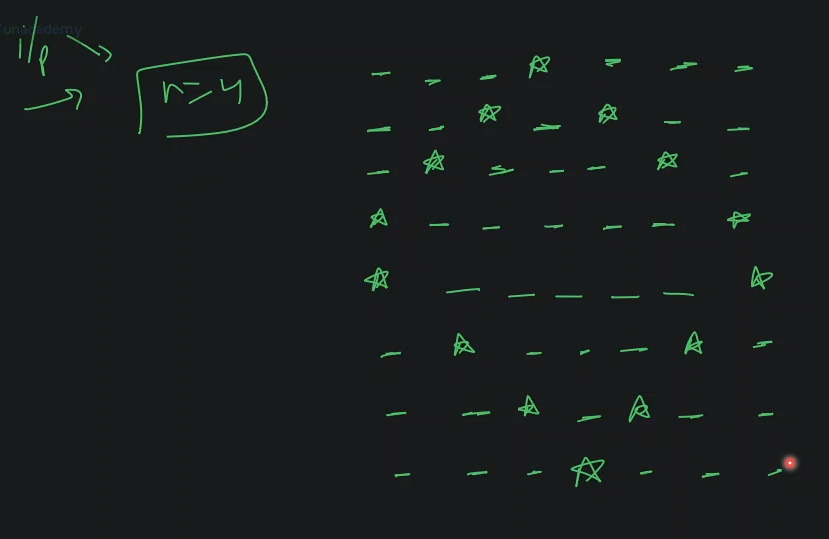 unacademy
i/p
n=4
_ _ _ ☆ _ _ _
_ _ ☆ _ ☆ _ _
_ ☆ _ _ _ ☆ _
☆ _ _ _ _ _ ☆
☆ _ _ _ _ _ ☆
_ ☆ _ _ _ ☆ _
_ _ ☆ _ ☆ _ _
_ _ _ ☆ _ _ _